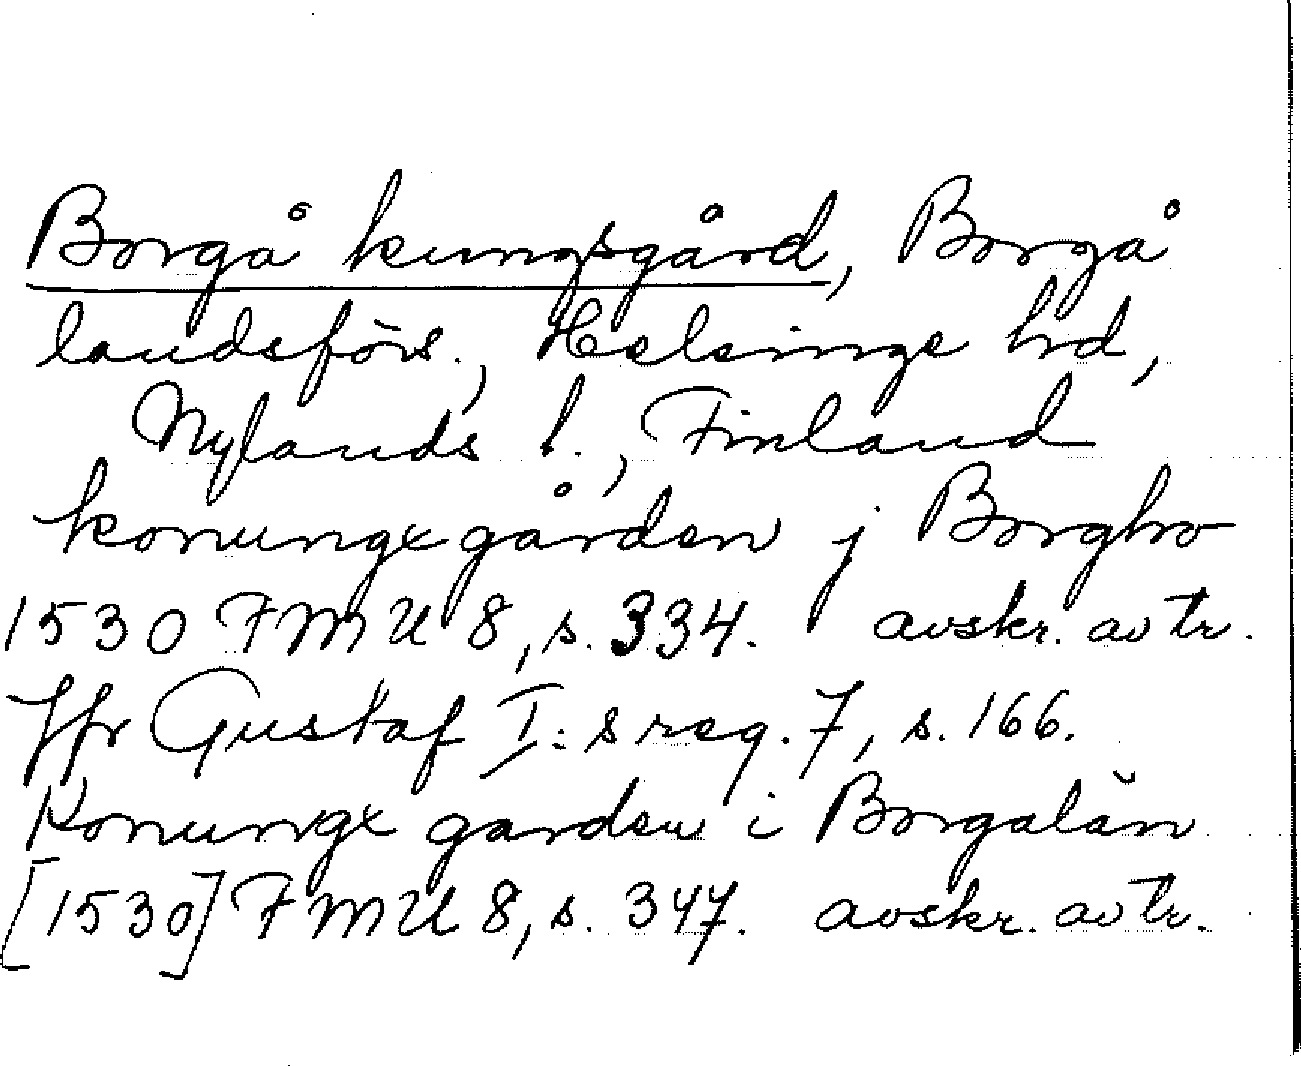 Borgå kungsgård, Borgå
landsförs., Helsinge hrd,
Nylands l., Finland
konungxgården j Borgho
1530 FMU 8, s. 334. avskr. av tr.
Jfr Gustaf I:s reg. 7, s. 166.
Konungx garden i Borgalän
[1530] FMU 8, s. 347. avskr. av tr.